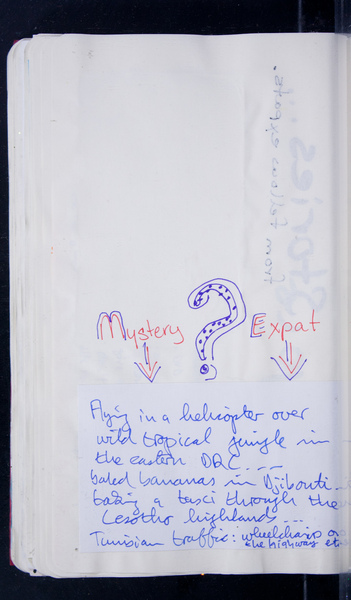 Stories...
from fellow expats.
Mystery ? Expat
Flying in a helicopter over
wild tropical jungle in
the eastern DRC....
baked bananas in Djibouti...
taking a taxi through the
Lesotho highlands...
Tunisian traffic: wheelchairs on
the highway etc